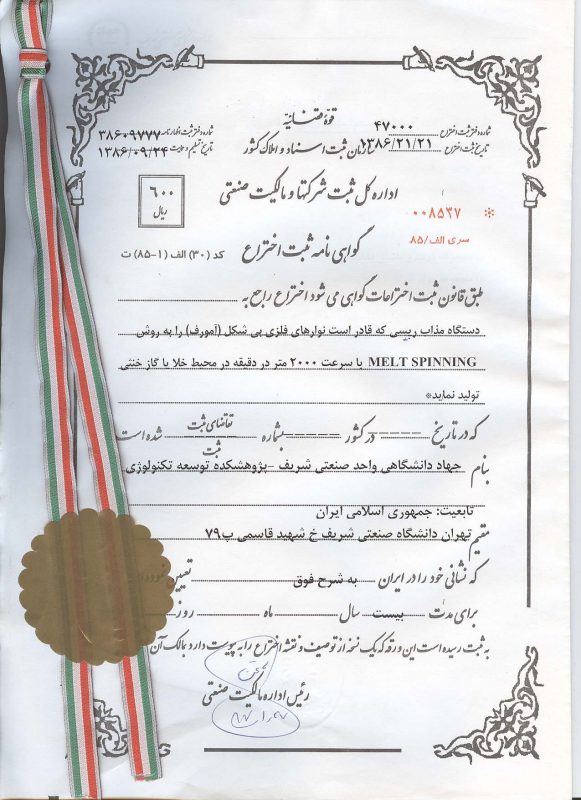 قوه قضائیه
شماره دفتر ثبت اختراع ۴۷۰۰۰
تاریخ ثبت اختراع ۱۳۸۶/۲۱/۲۱
سازمان ثبت اسناد و املاک کشور
شماره دفتر ثبت اظهارنامه ۳۸۶۰۹۷۷۷
تاریخ تسلیم ۱۳۸۶/۰۹/۲۴
اداره کل ثبت شرکتها و مالکیت صنعتی
۶۰۰
ریال
* ۰۰۸۵۳۷
سری الف/۸۵
گواهی نامه ثبت اختراع
کد (۳۰) الف (۱-۸۵) ت
طبق قانون ثبت اختراعات گواهی می شود اختراع راجع به
دستگاه مذاب ریسی که قادر است نوارهای فلزی بی شکل (آمورف) را به روش
MELT SPINNING با سرعت ۲۰۰۰ متر در دقیقه در محیط خلا یا گاز خنثی
تولید نماید*
که در تاریخ ----- در کشور ------ بشماره ------ تقاضای ثبت شده است
ثبت
بنام جهاد دانشگاهی واحد صنعتی شریف -پژوهشکده توسعه تکنولوژی
تابعیت: جمهوری اسلامی ایران
مقیم تهران دانشگاه صنعتی شریف خ شهید قاسمی پ۷۹
که نشانی خود را در ایران به شرح فوق تعیین نموده
برای مدت بیست سال ماه روز
به ثبت رسیده است این ورقه که یک نسخه از توصیف و نقشه اختراع را به پیوست دارد بمالک آن
رئیس اداره مالکیت صنعتی